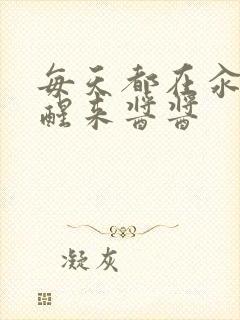 每天都在汆
醒来酱酱
凝灰